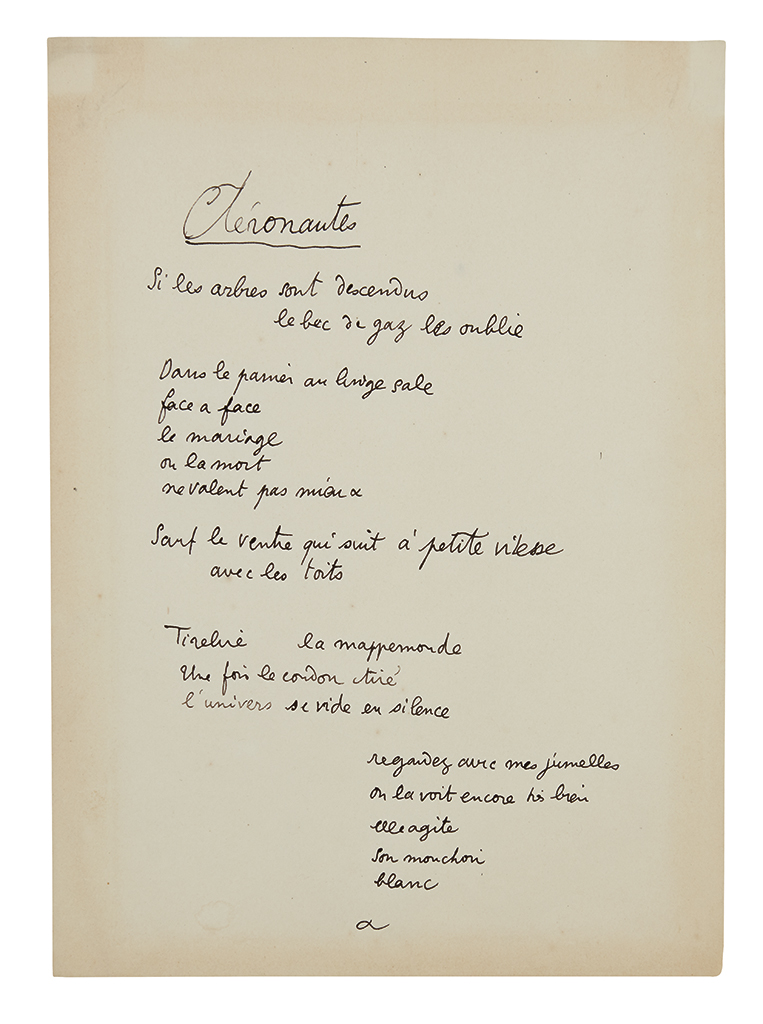 Aéronautes
Si les arbres sont descendus
le bec de gaz les oublie
Dans le panier au linge sale
face a face
le mariage
ou la mort
ne valent pas mieux
Sauf le ventre qui suit à petite vitesse
avec les toits
Tirelire la mappemonde
Une fois le cordon tiré
l'univers se vide en silence
regardez avec mes jumelles
on la voit encore très bien
elle agite
son mouchoir
blanc